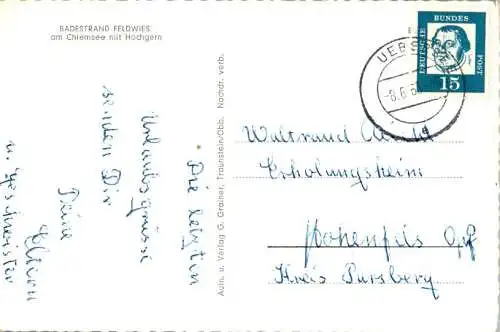 BADESTRAND FELDWIES
am Chiemsee mit Hochgern
Die letzten
Urlaubsgrüsse
senden Dir
Deine
Eltern
u. Geschwister
Aufn. u. Verlag G. Grainer, Traunstein/Obb. Nachdr. verb.
DEUTSCHE
BUNDES
POST
15
UEBS
-8.6.6
Waltraud
Erholungsheim
Hohenfels Opf
Kreis Parsberg